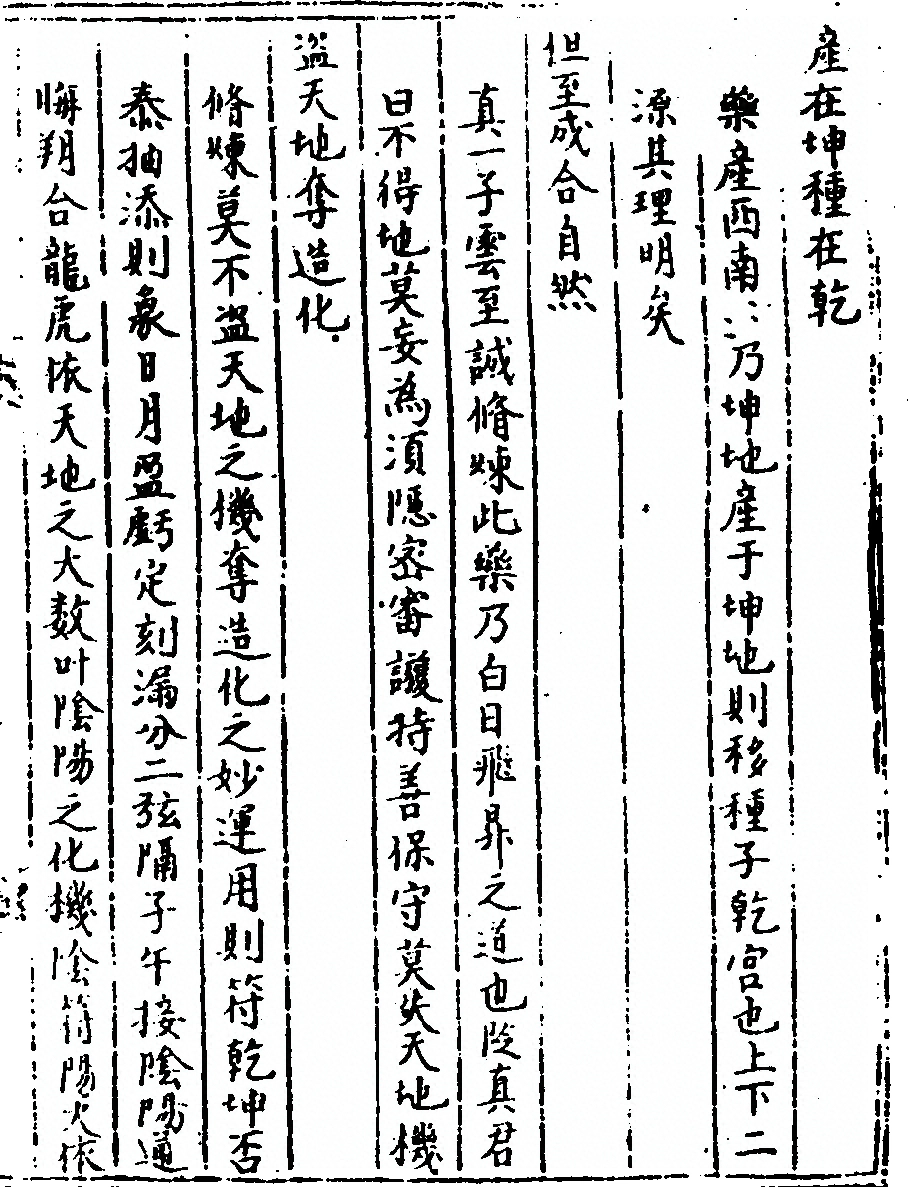 產在坤種在乾
藥產西南〻乃坤地產于坤地則移種子乾宮也上下二
源其理明矣
但至成合自然
真一子雲至誠脩煉此藥乃白日飛昇之道也阮真君
曰不得地莫妄為須隱密審護持善保守莫失天地機
盜天地奪造化
脩煉莫不盗天地之機奪造化之妙運用則符乾坤否
泰抽添則象日月盈虧定刻漏分二弦隔子午接陰陽通
晦朔合龍虎依天地之大数叶陰陽之化機陰符陽火依